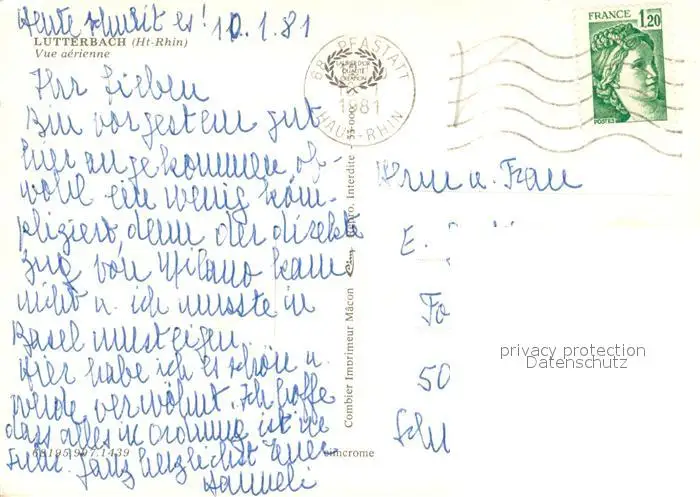 Heute schneit es! 10.1.81
LUTTERBACH (Ht-Rhin)
Vue aérienne
Ihr Lieben
Bin vorgestern gut
hier angekommen, ob-
wohl ein wenig kom-
pliziert, denn der direkte
Zug von Milano kam
nicht u. ich musste in
Basel umsteigen.
Hier habe ich es schön u.
werde verwöhnt. Ich hoffe
dass alles in Ordnung ist in
Ganz herzlichst Euer
Hanneli
68195 997 1439
Combier Imprimeur Mâcon
Interdite
cimcrome
68 PFASTATT
1981
HAUT-RHIN
FRANCE 1,20
POSTES
Herrn u. Frau
E.
Fo
50
Schw
privacy protection
Datenschutz